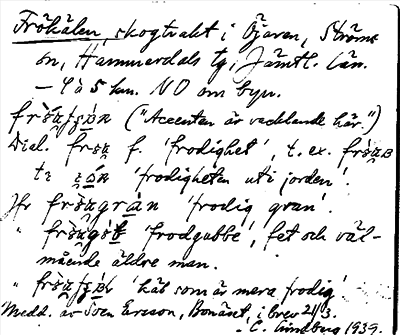 Frökälen, skogtrakt i Öjaren, Ströms
sn, Hammerdals tg, Jämtl. län.
— 4 à 5 km. NO om byn.
("Accenten är vacklande här.")
Dial. f. 'frodighet', t. ex.
'frodigheten uti jorden'.
Jfr 'frodig gran'.
" 'frodgubbe', fet och väl-
mående äldre man.
" 'käl som är mera frodig'
Medd. av Sven Ersson, Bonäset, i brev 21/3.
C. Lindberg 1939.